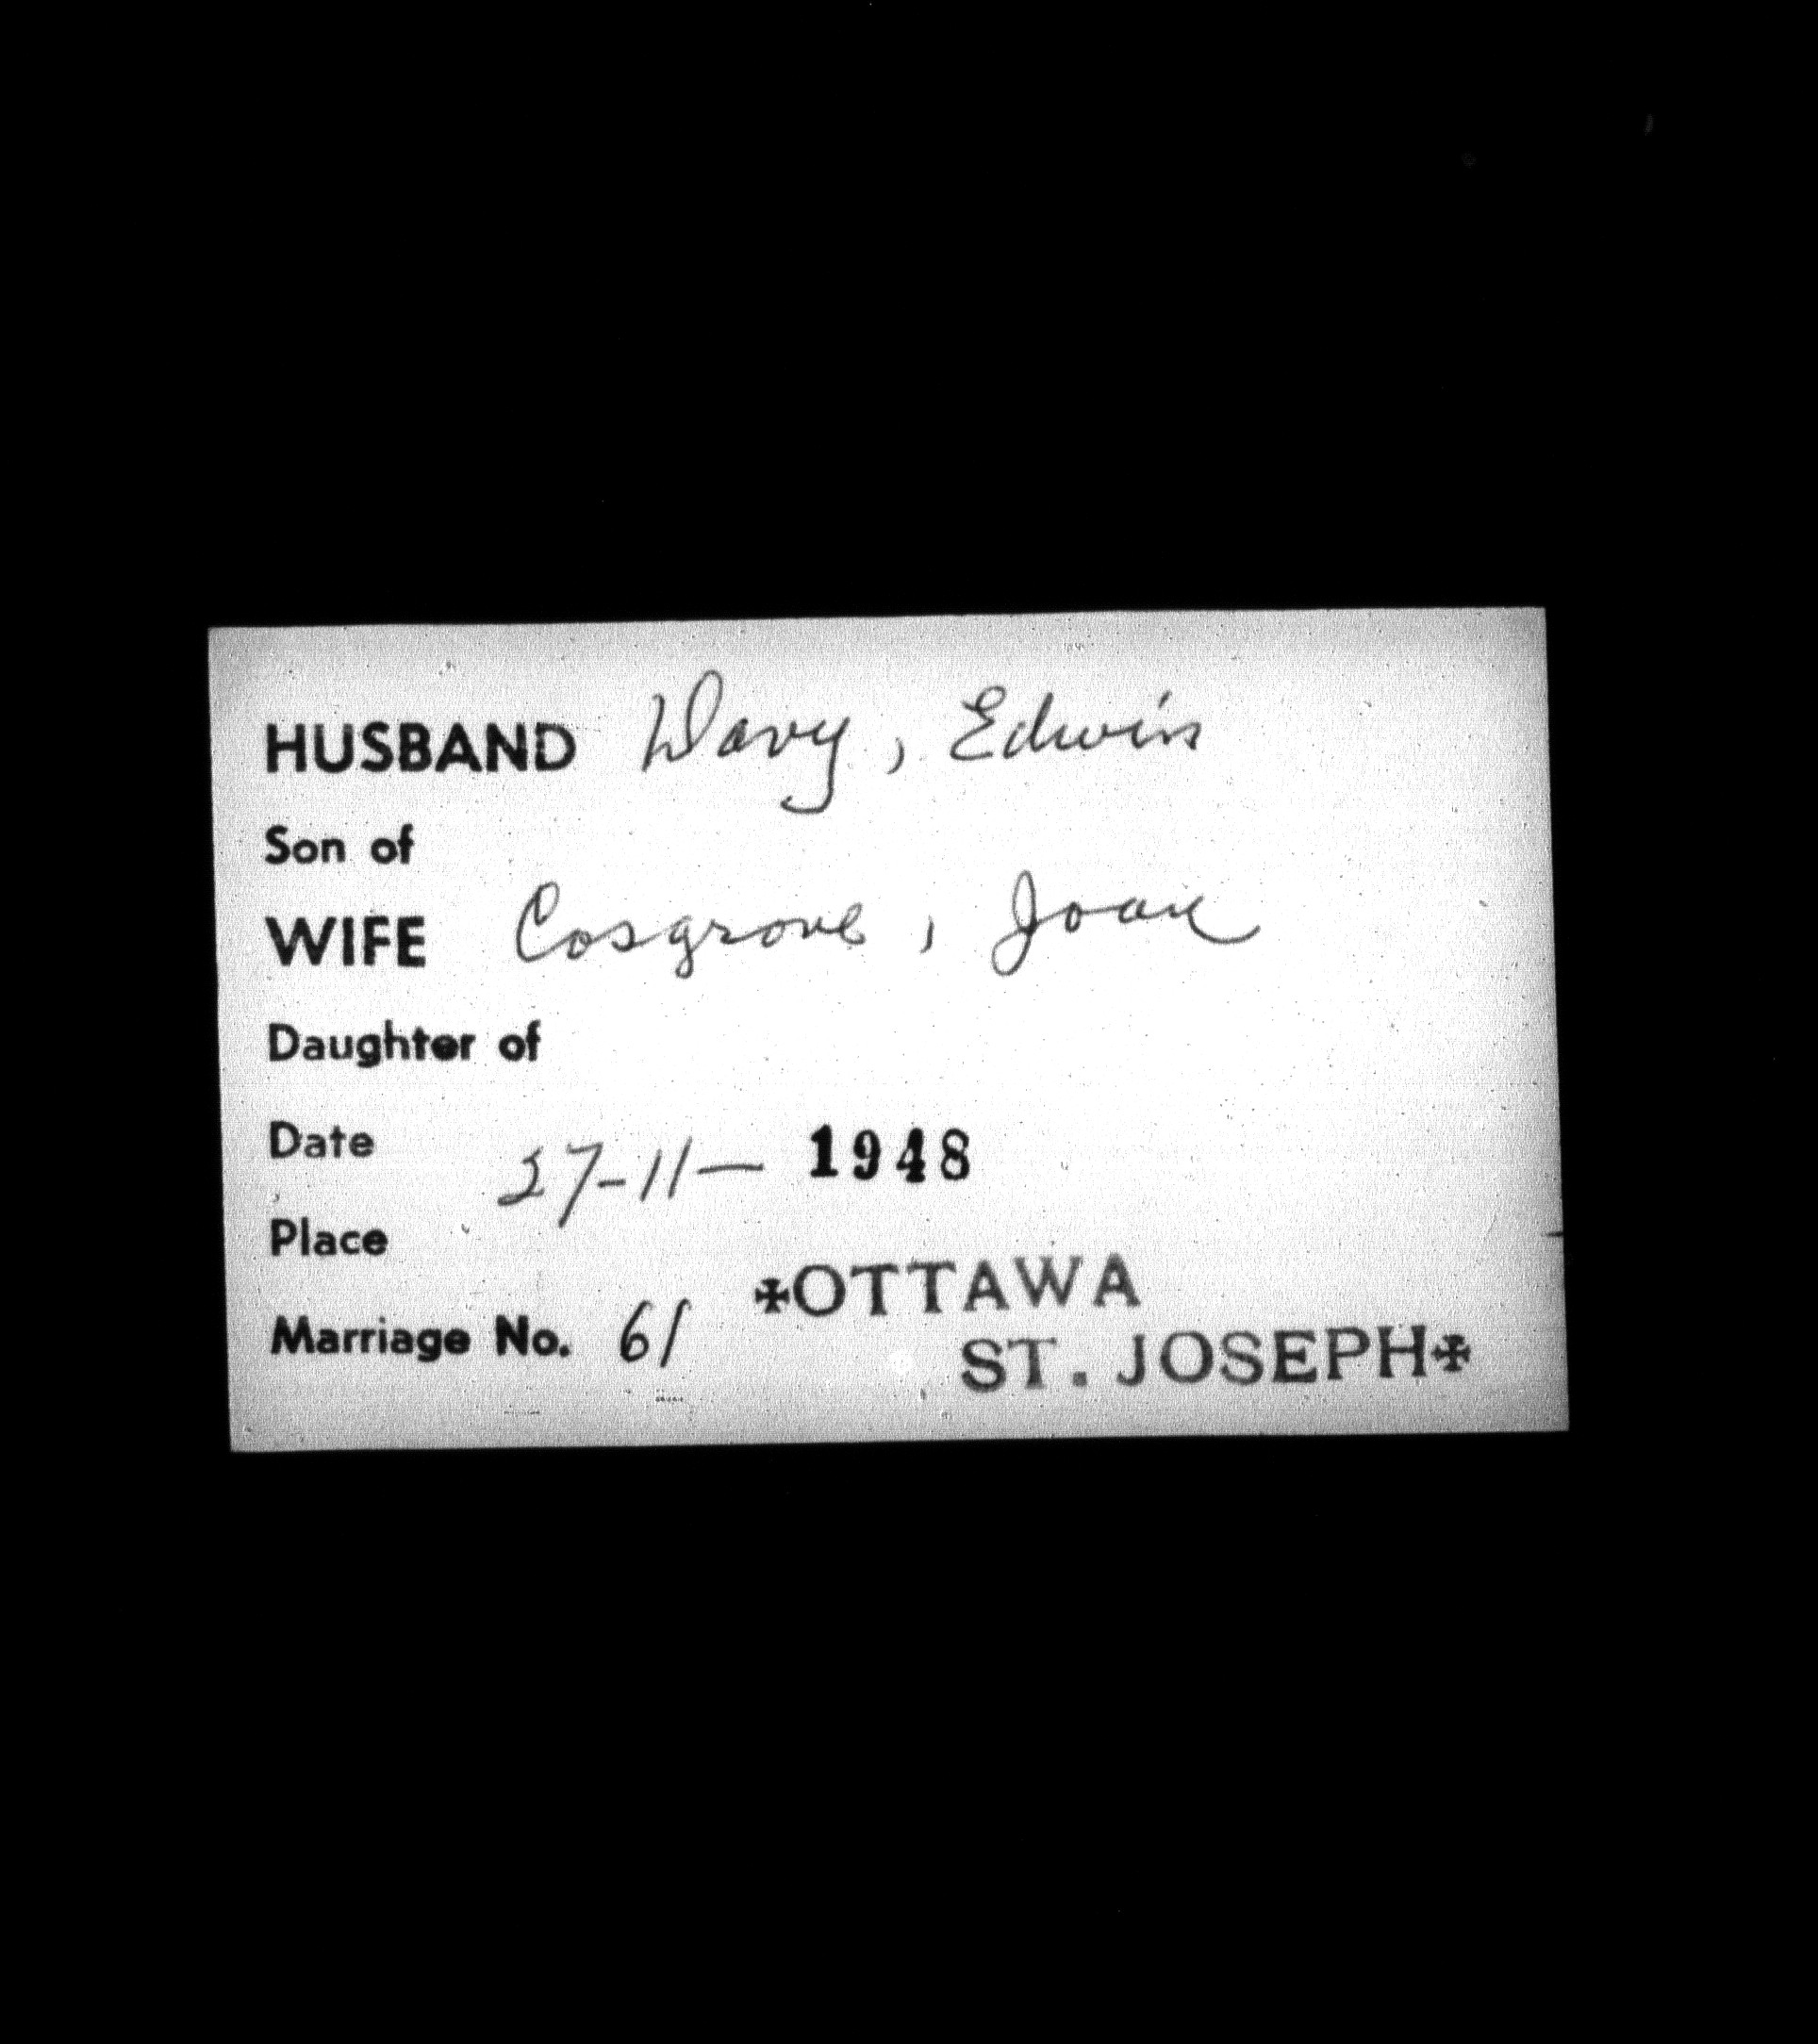 HUSBAND Davy, Edwin
Son of
WIFE Cosgrove, Joan
Daughter of
Date 27-11- 1948
Place
✠OTTAWA
Marriage No. 61
ST. JOSEPH✠